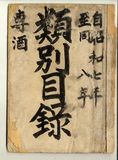 自昭和七年
至同八年
類別目録
尊酒